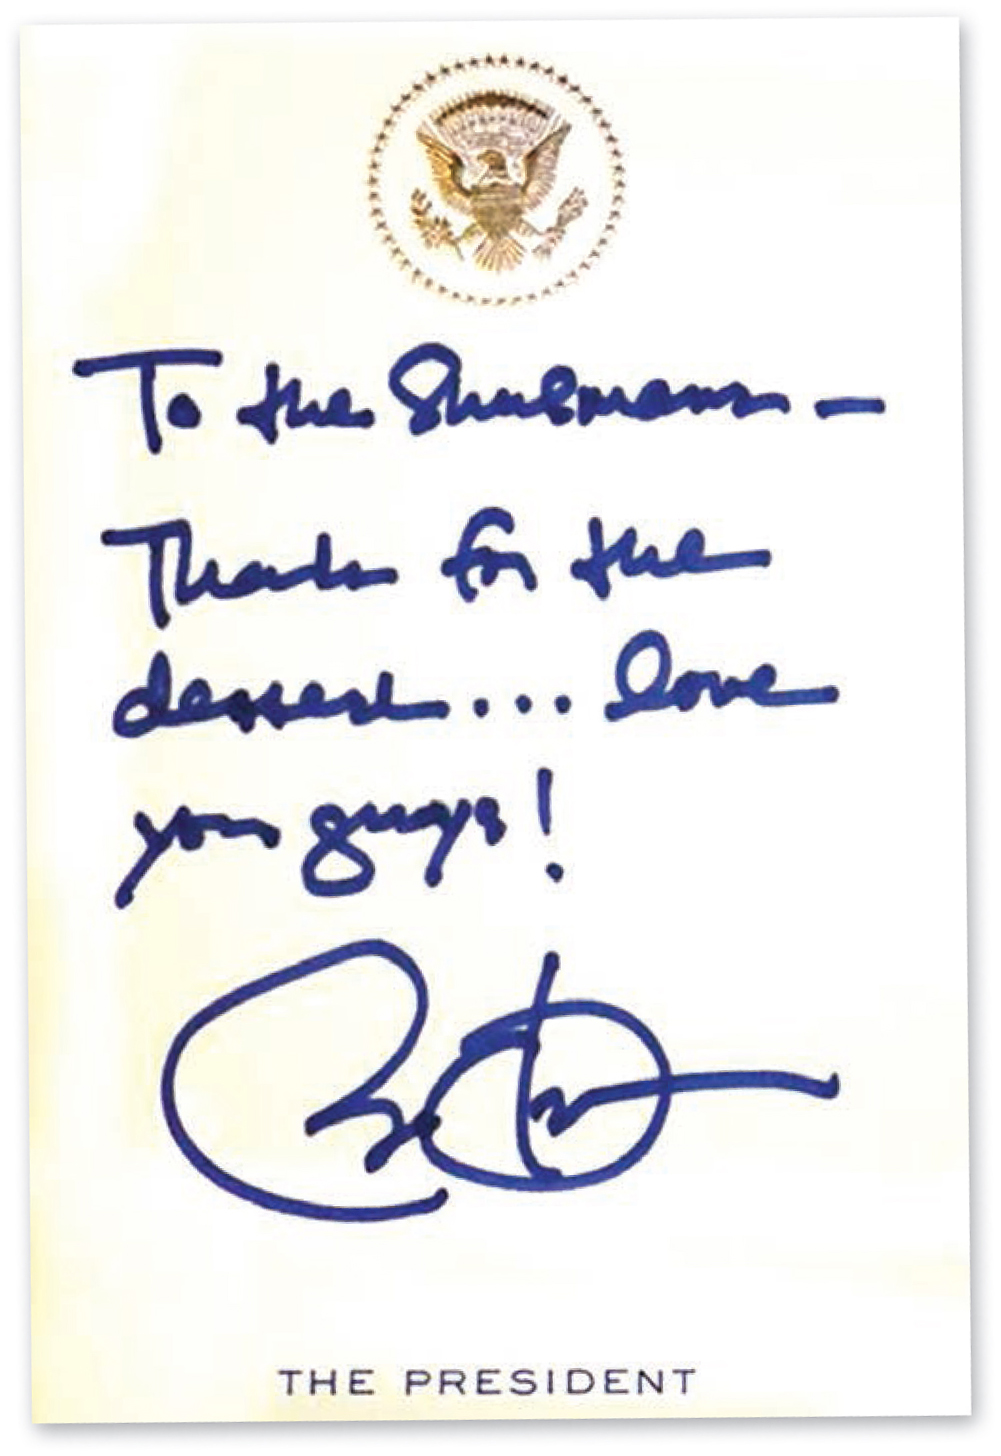 To the —
Thanks for the
dessert... love
you guys!
THE PRESIDENT